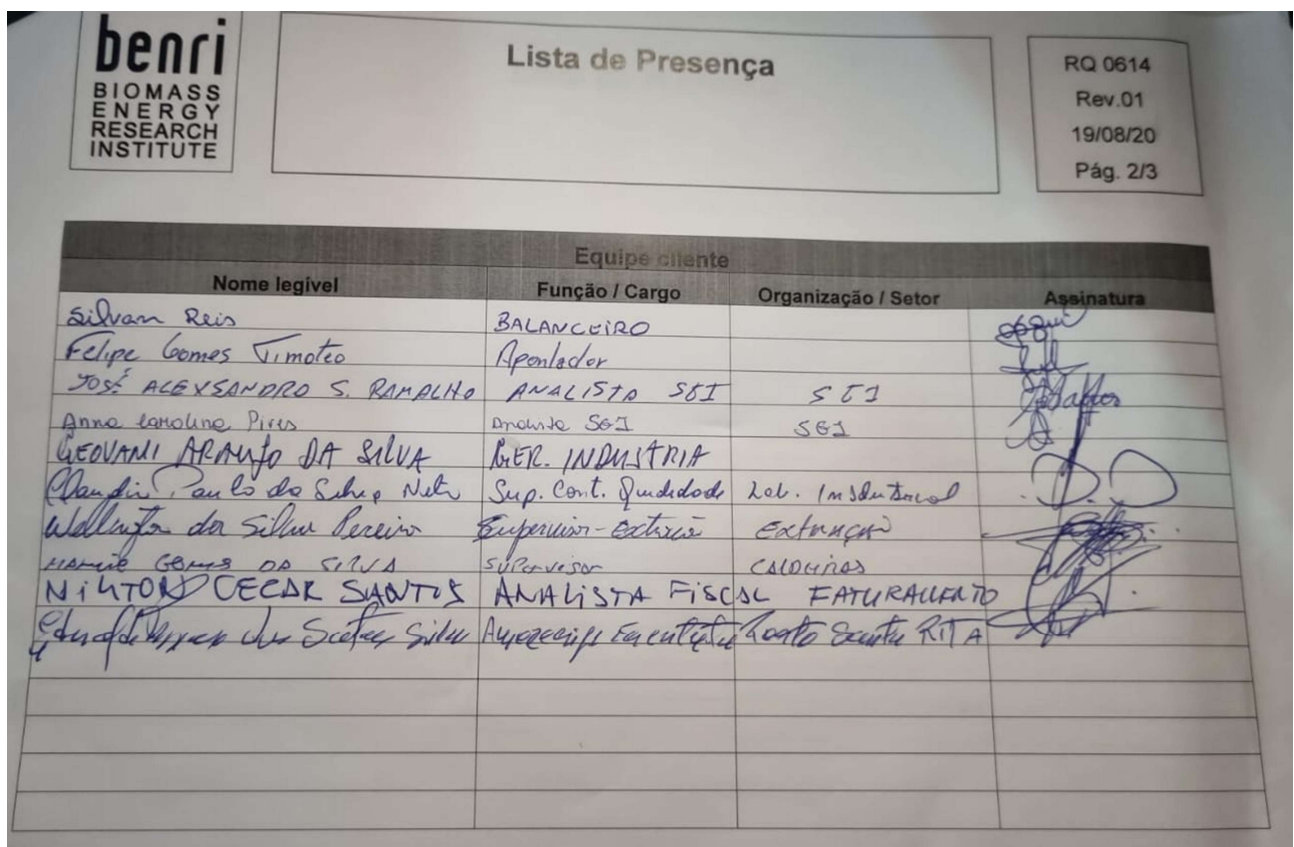 benri
BIOMASS
ENERGY
RESEARCH
INSTITUTE
Lista de Presença
RQ 0614
Rev.01
19/08/20
Pág. 2/3
Equipe cliente
Nome legível Função / Cargo Organização / Setor Assinatura
Silvan Reis BALANCEIRO
Felipe Gomes Timoteo Apontador
JOSÉ ALEXSANDRO S. RAMALHO ANALISTA SGI SGI
Anna Carolina Pires Analista SGI SGI
GEOVANI ARAUJO DA SILVA GER. INDUSTRIA
Paulo da Silva Neto Sup. Cont. Qualidade Lab. Industrial
da Silva Pereira Supervisor - Extração Extração
GOMES DA SILVA Supervisor CALDEIRAS
NILTON CECAR SANTOS ANALISTA FISCAL FATURAMENTO
dos Santos Silva Santa RITA